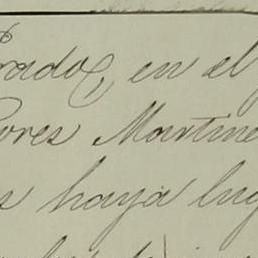 rado, en el
ores Martine
s haya lug